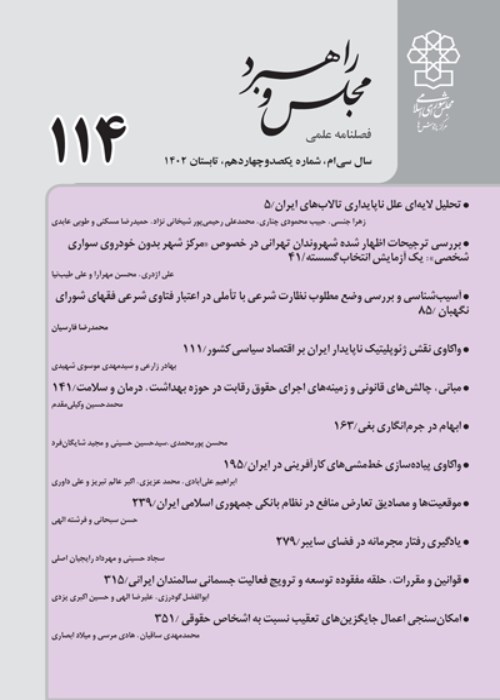 مجلس شورای اسلامی
مرکز پژوهش‌ها
مجلس و راهبرد
فصلنامه علمی
۱۱۴
سال سی‌ام، شماره یکصدوچهاردهم، تابستان ۱۴۰۲
● تحلیل لایه‌ای علل ناپایداری تالاب‌های ایران/۵
زهرا جنسی، حبیب محمودی چناری، محمدعلی رحیمی‌پور شیخانی نژاد، حمیدرضا مسکنی و طوبی عابدی
● بررسی ترجیحات اظهار شده شهروندان تهرانی در خصوص «مرکز شهر بدون خودروی سواری
شخصی»؛ یک آزمایش انتخاب گسسته/۴۱
علی اژدری، محسن مهرآرا و علی طیب‌نیا
● آسیب‌شناسی و بررسی وضع مطلوب نظارت شرعی با تأملی در اعتبار فتاوی شرعی فقهای شورای
نگهبان /۸۵
محمدرضا فارسیان
● واکاوی نقش ژئوپلیتیک ناپایدار ایران بر اقتصاد سیاسی کشور/۱۱۱
بهادر زارعی و سیدمهدی موسوی شهیدی
● مبانی، چالش‌های قانونی و زمینه‌های اجرای حقوق رقابت در حوزه بهداشت، درمان و سلامت/۱۴۱
محمدحسین وکیلی‌مقدم
● ابهام در جرم‌انگاری بغی/۱۶۳
محسن پورمحمدی، سیدحسین حسینی و مجید شایگان‌فرد
● واکاوی پیاده‌سازی خط‌مشی‌های کارآفرینی در ایران/۱۹۵
ابراهیم علی‌آبادی، محمد عزیزی، اکبر عالم تبریز و علی داوری
● موقعیت‌ها و مصادیق تعارض منافع در نظام بانکی جمهوری اسلامی ایران/۲۳۹
حسن سبحانی و فرشته الهی
● یادگیری رفتار مجرمانه در فضای سایبر/۲۷۹
سجاد حسینی و مهرداد رایجیان اصلی
● قوانین و مقررات، حلقه مفقوده توسعه و ترویج فعالیت جسمانی سالمندان ایرانی/۳۱۵
ابوالفضل گودرزی، علیرضا الهی و حسین اکبری یزدی
● امکان‌سنجی اعمال جایگزین‌های تعقیب نسبت به اشخاص حقوقی /۳۵۱
محمدمهدی ساقیان، هادی مرسی و میلاد ابصاری